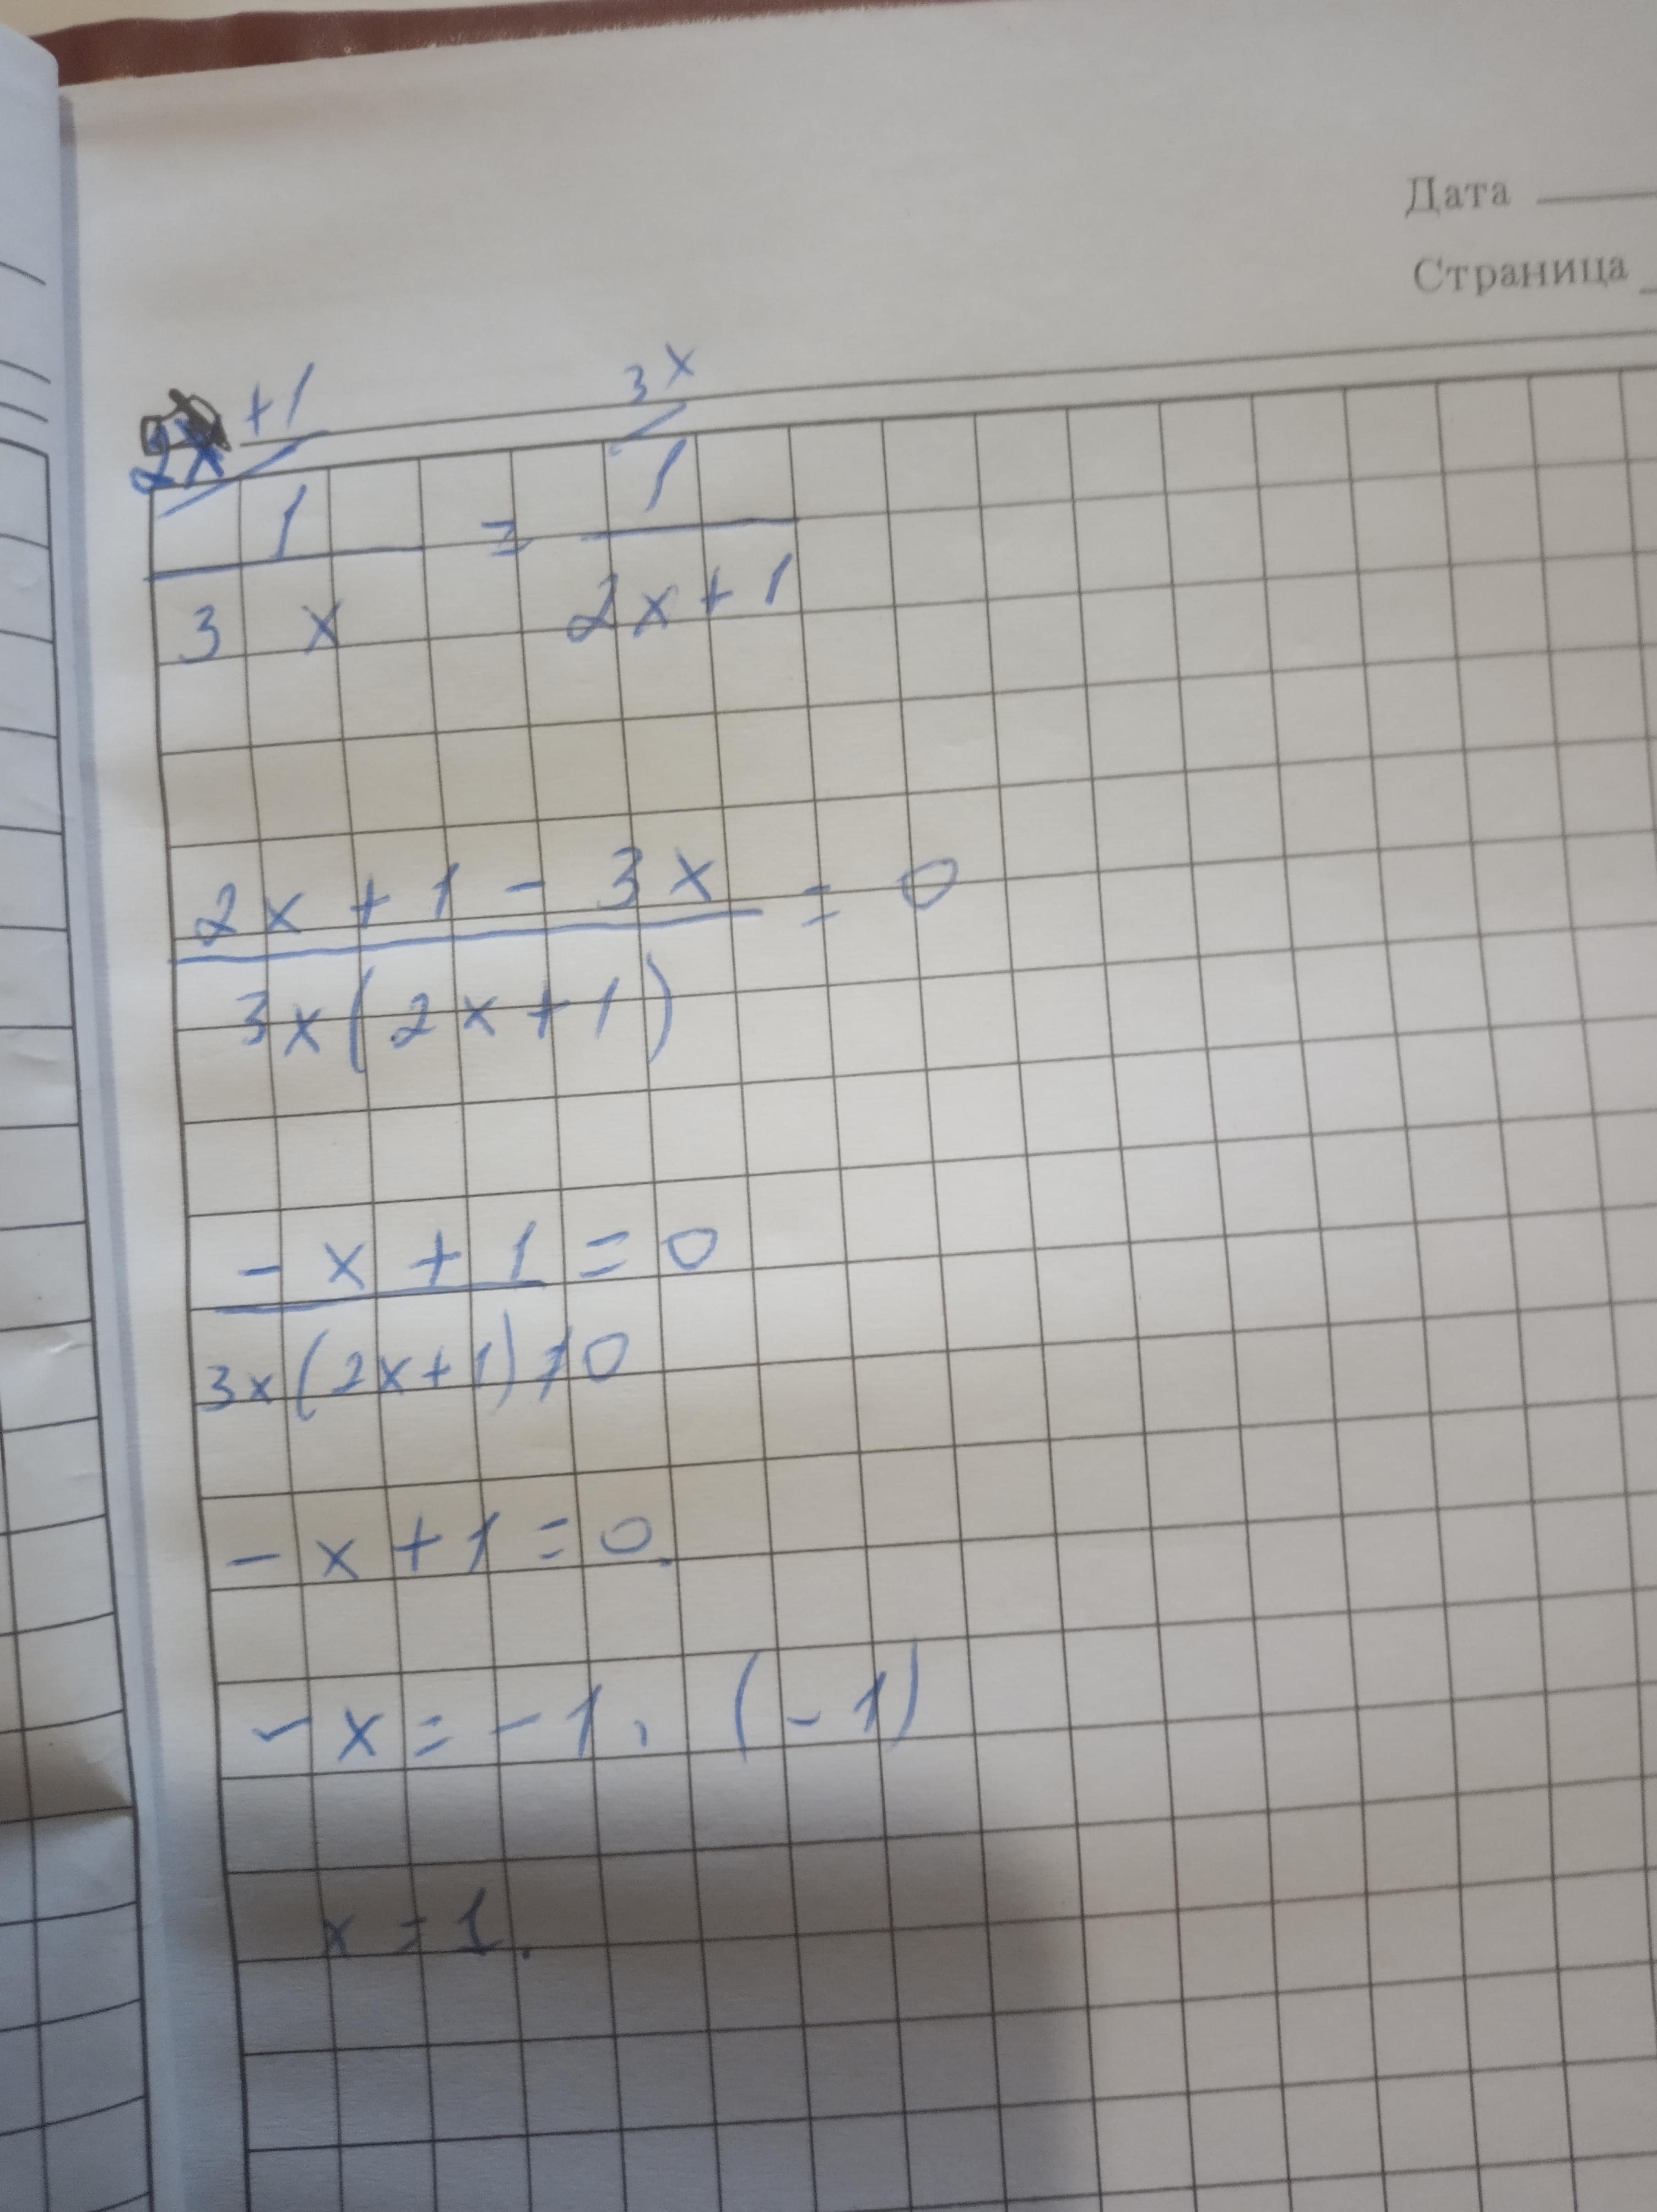 Дата
Страница
2x +1 3x
1 = 1
3 x 2x+1
2x + 1 - 3x = 0
3x(2x+1)
-x + 1 = 0
3x(2x+1)≠0
-x+1=0.
-x = -1, (-1)
x = 1.